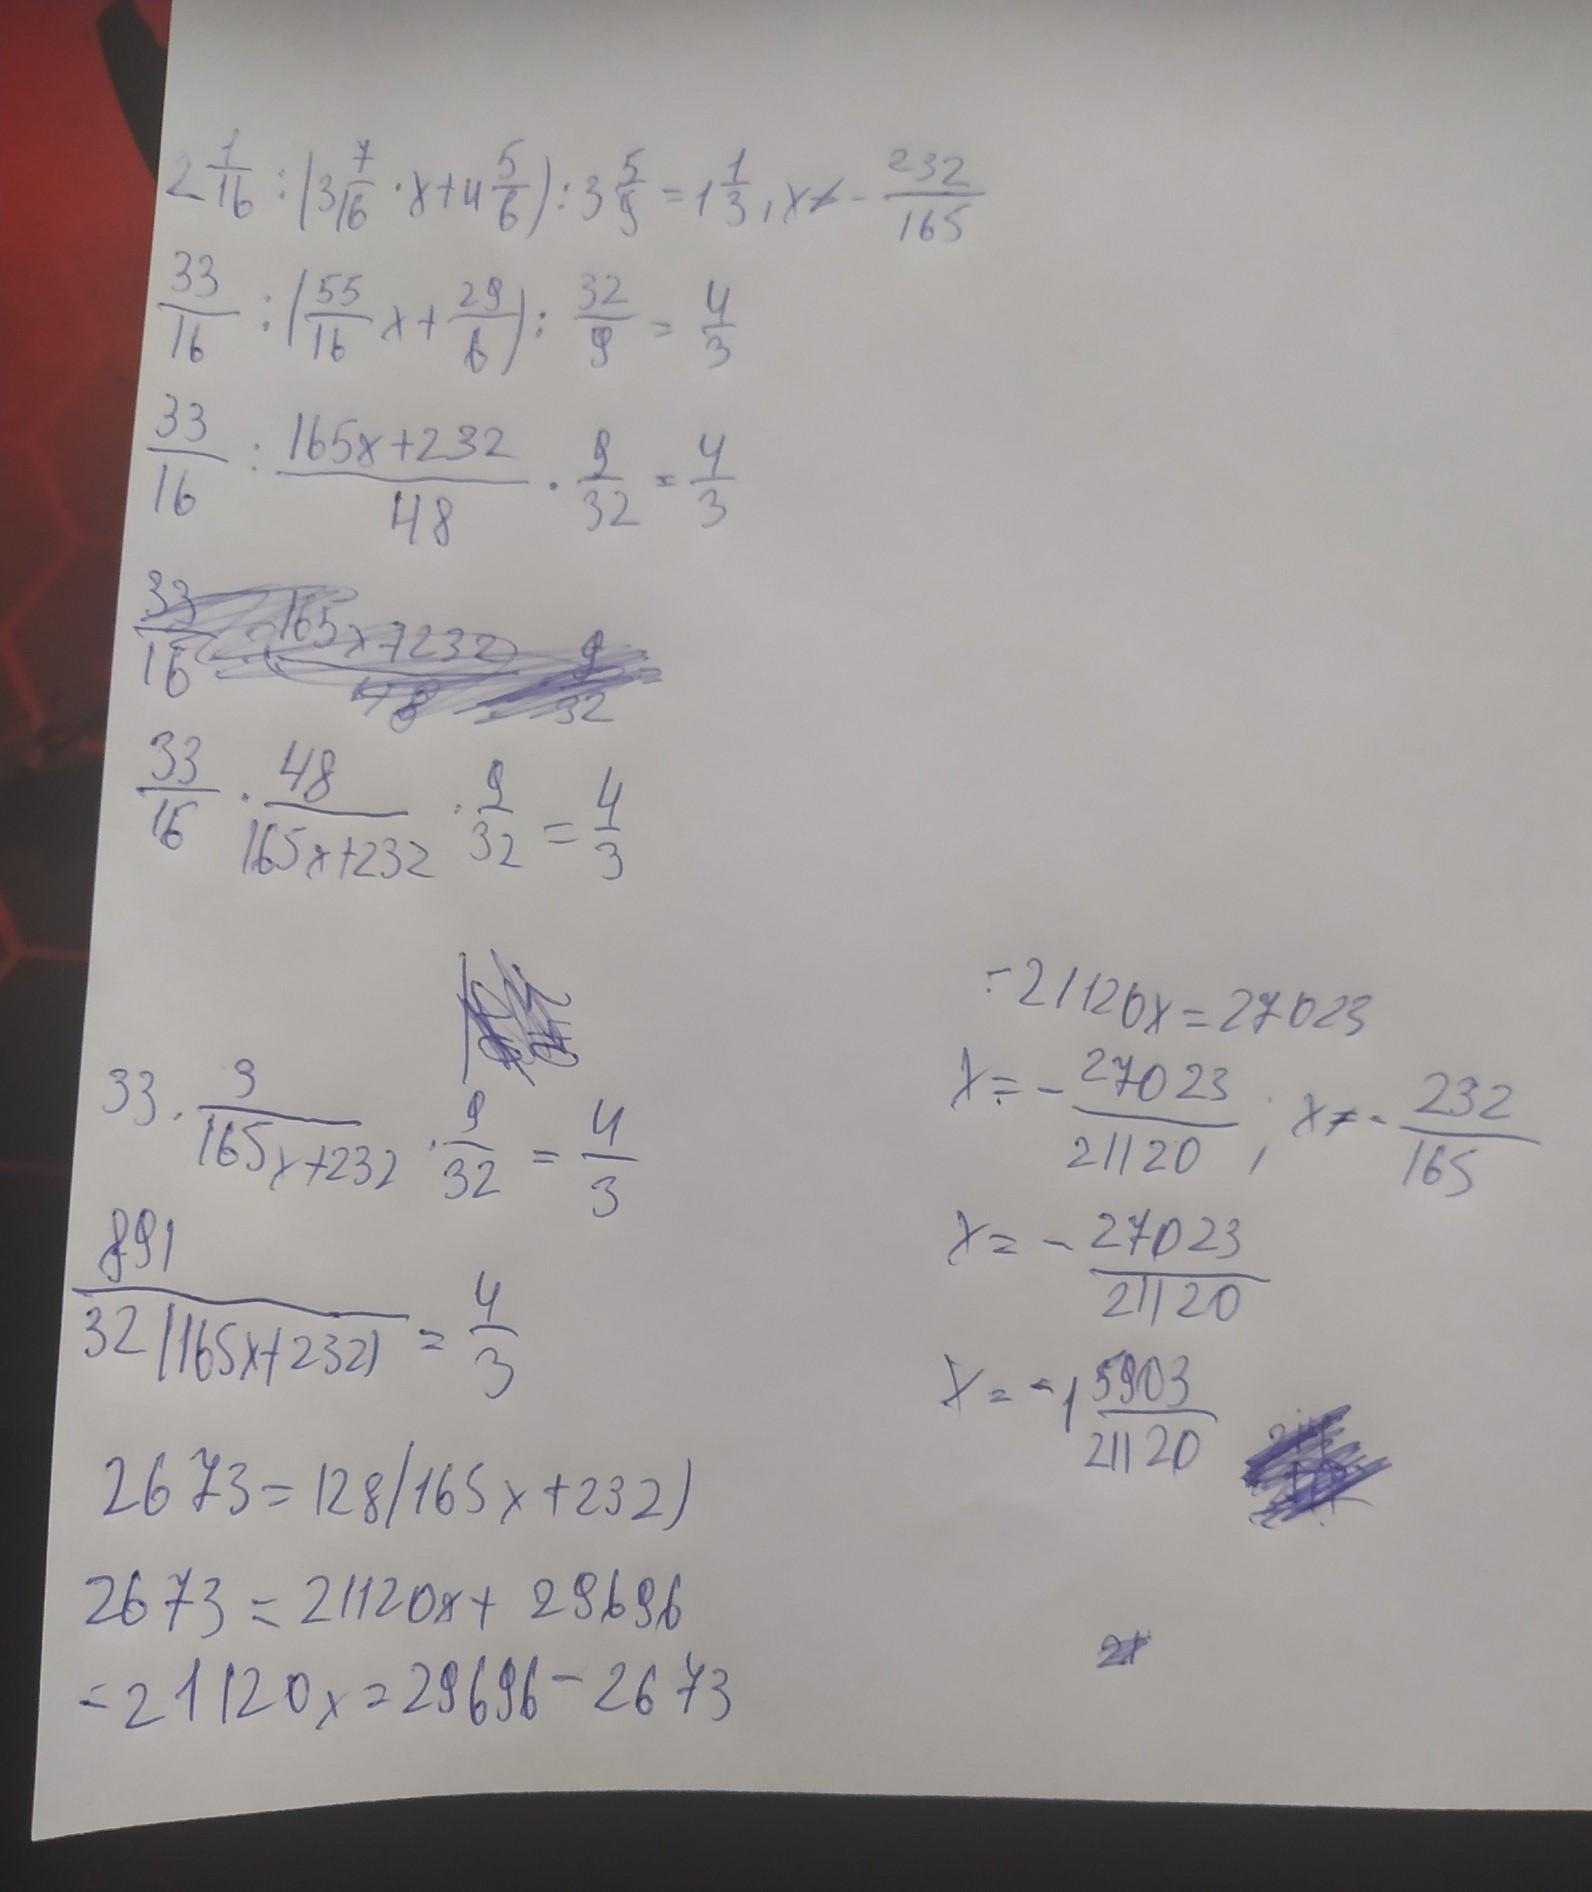 2 1/16 : (3 7/16 · x + 4 5/6) : 3 5/9 = 1 1/3, x ≠ - 232/165
33/16 : (55/16 x + 29/6) : 32/9 = 4/3
33/16 : (165x+232)/48 · 9/32 = 4/3
33/16 · 48/(165x+232) · 9/32 = 4/3
33 · 3/(165x+232) · 9/32 = 4/3
891/(32(165x+232)) = 4/3
2673 = 128(165x+232)
2673 = 21120x + 29696
-21120x = 29696 - 2673
-21120x = 27023
x = - 27023/21120 ; x ≠ - 232/165
x = - 27023/21120
x = -1 5903/21120